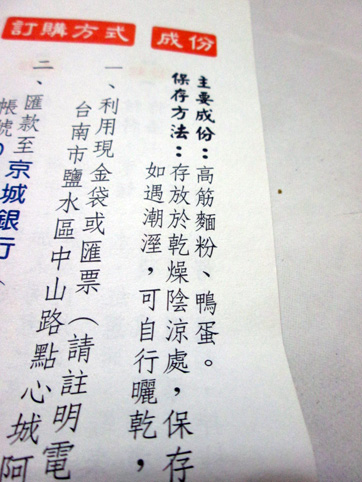 成份
主要成份：高筋麵粉、鴨蛋。
保存方法：存放於乾燥陰涼處，保存
如遇潮溼，可自行曬乾，
訂購方式
一、利用現金袋或匯票（請註明電
台南市鹽水區中山路點心城阿
二、匯款至京城銀行
帳號